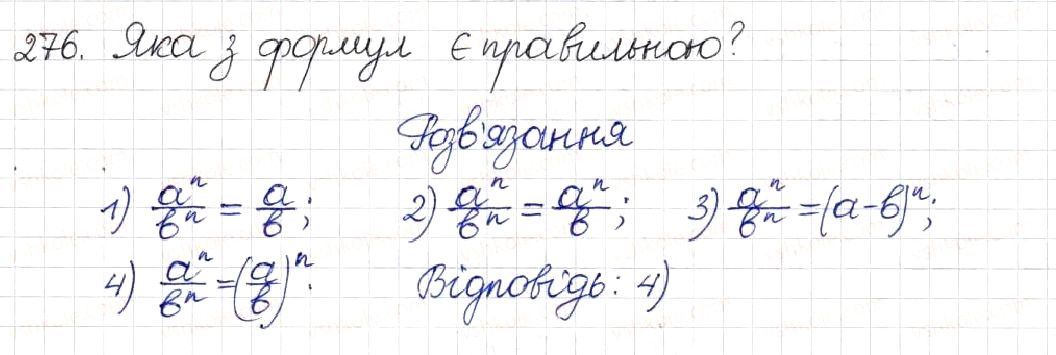 276. Яка з формул є правильною?
Розв'язання
1) aⁿ/вⁿ = a/в; 2) aⁿ/вⁿ = aⁿ/в; 3) aⁿ/вⁿ = (a-в)ⁿ;
4) aⁿ/вⁿ = (a/в)ⁿ. Відповідь: 4)